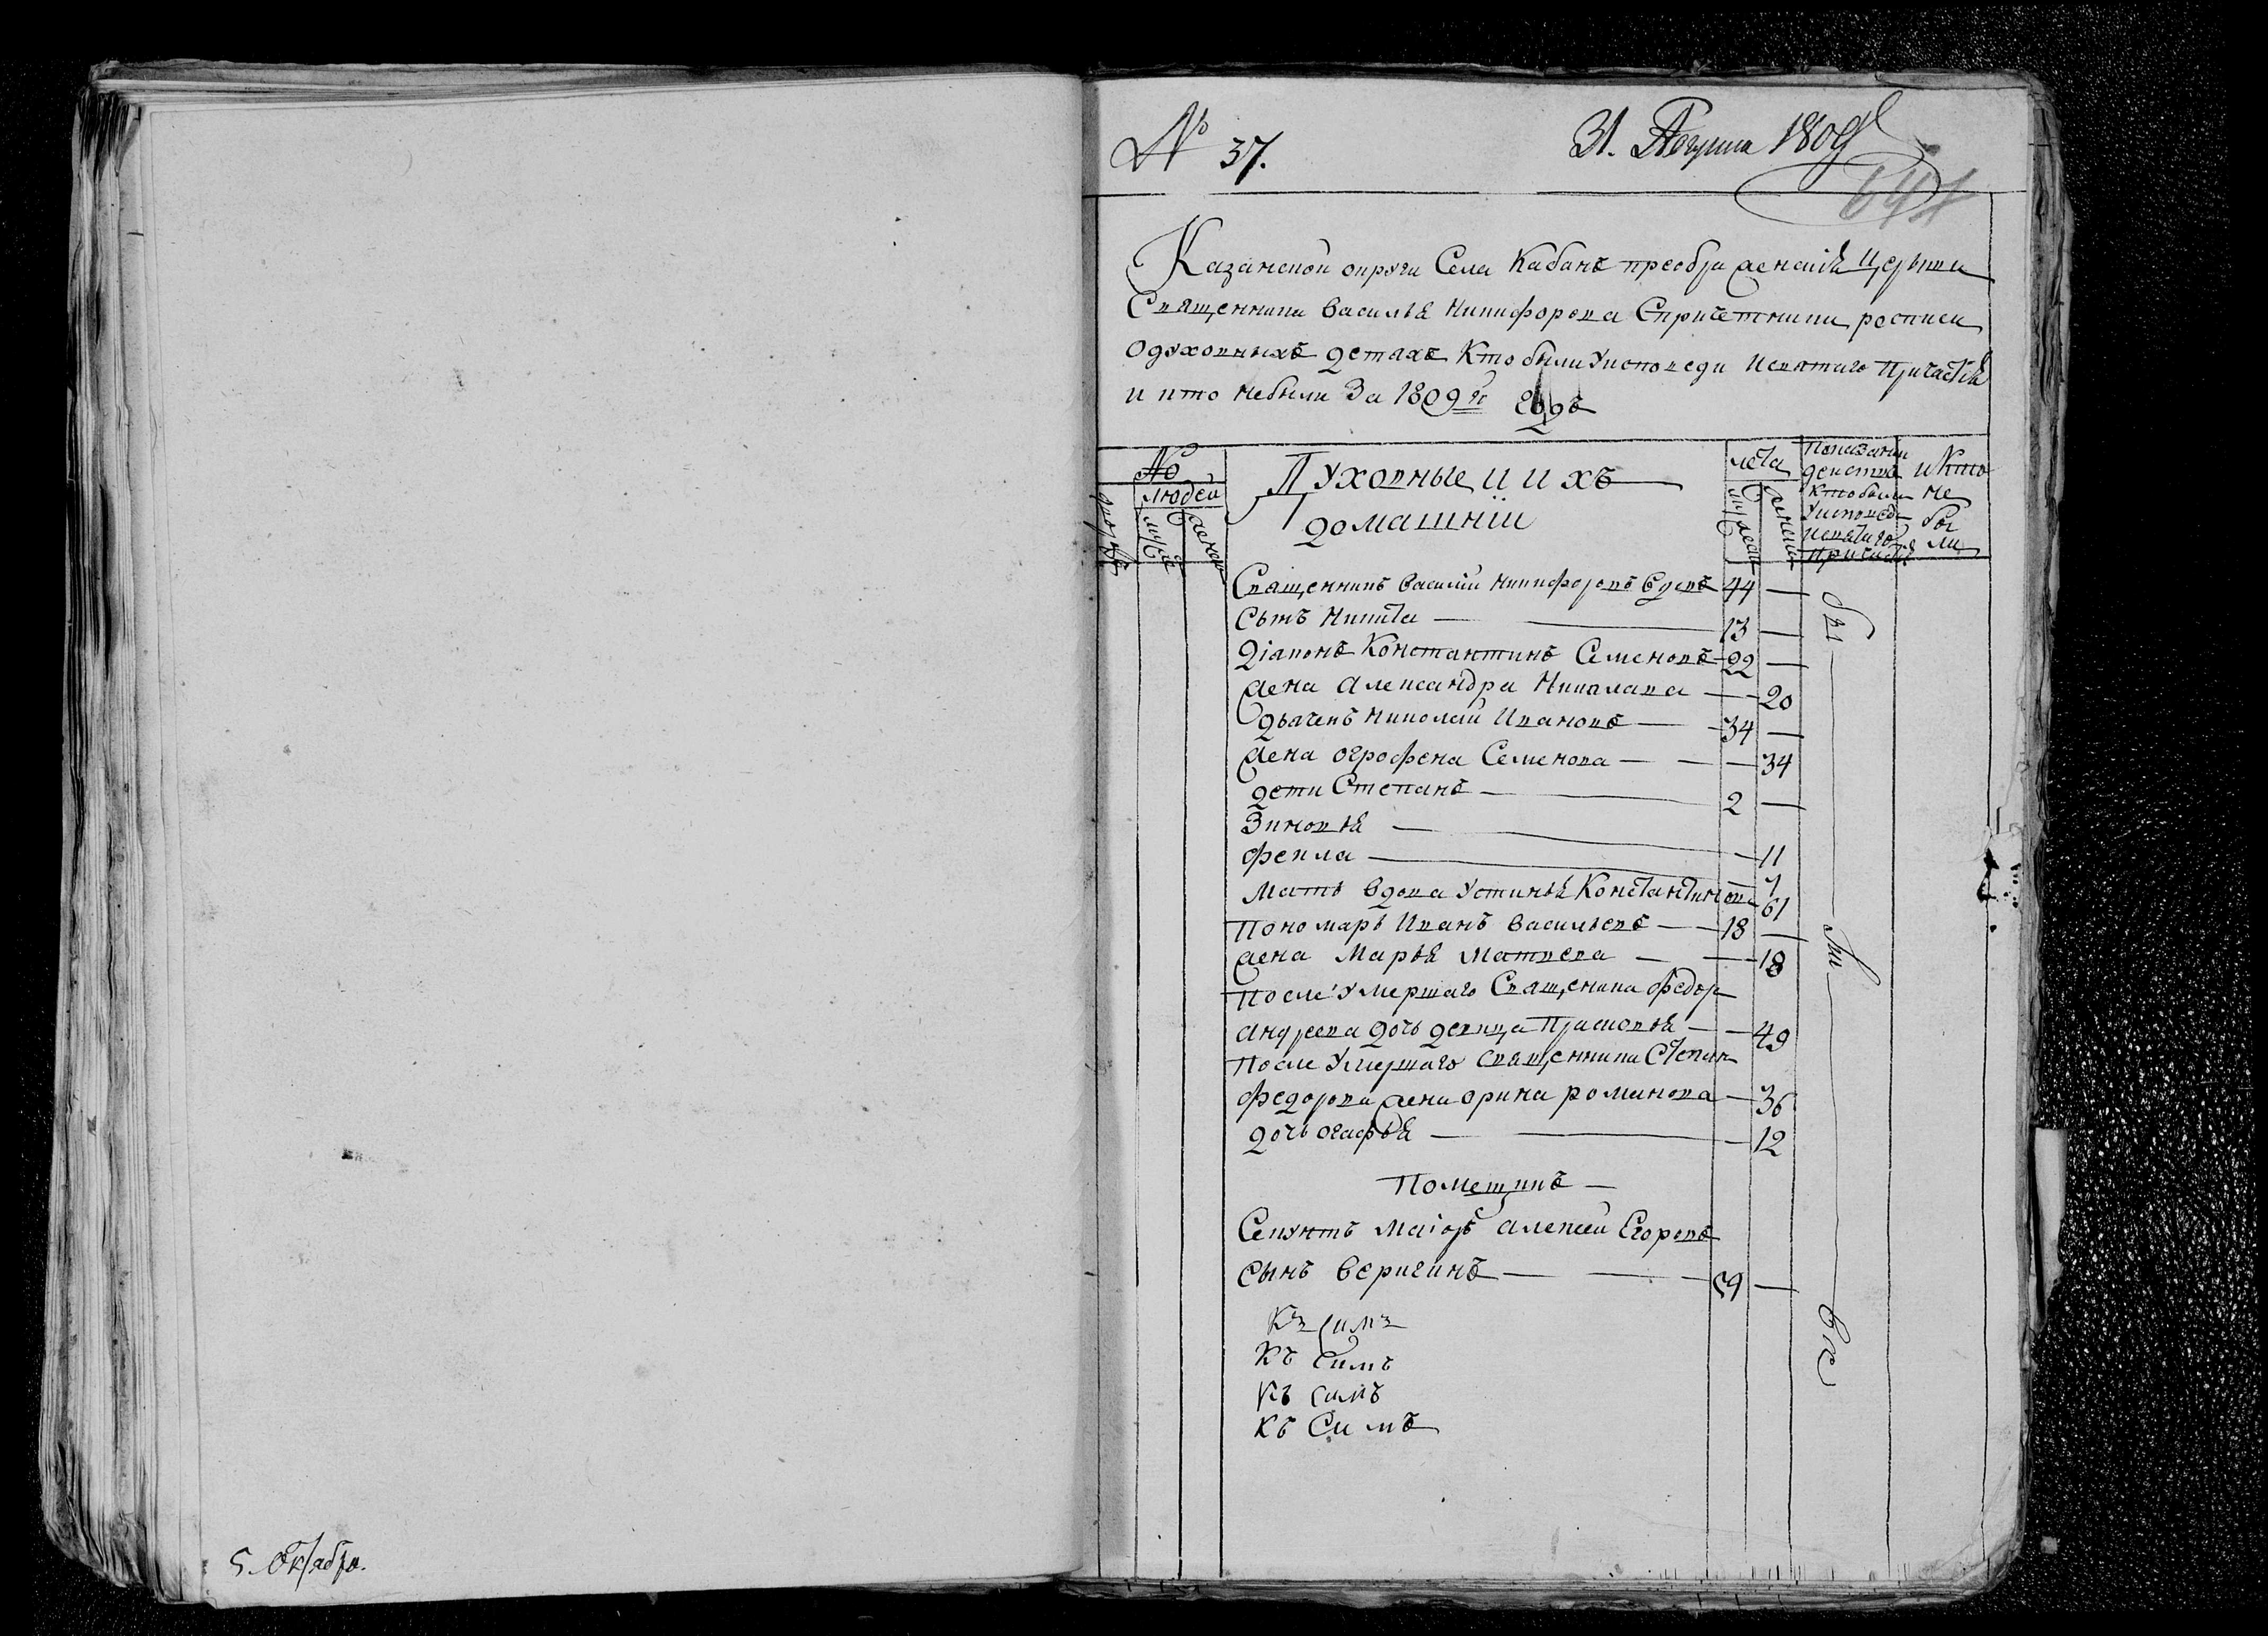 5. Октября.
№ 37.
31. Августа 1809
641
Казанской округи Села Кабанъ преображенсія Церькви
Священника Василья Никифорова Спричетники росписи
Одуховныхъ детахъ Кто были Уисповеди Исвятаго Причастія
и кто небыли За 1809й годъ
№
людей
дворовъ
мужеска
женска
Духовные и ихъ
домашніи
лета
мужеска
женска
Показании
действа
кто были
Уисповеди
Исвятаго
причастія
и Кто
не
бы
ли
Священникъ Василий Никифоровъ Вдовъ 44 —
Сынъ Никита — 13 —
Діаконъ Константинъ Семеновъ 22 —
жена Александра Николаева — 20
дьячекъ Николай Ивановъ — 34 —
жена огрофена Семенова — 34
дети Степанъ — 2 —
Зиновья — 11
фекла — 7
Мать вдова Устинья Константинова 61
Пономарь Иванъ Васильевъ — 18 —
жена Марья Матвеева — 18
После Умершаго Священика Федора
Андреева дочь девица Прасковья — 49
После Умершаго священника Степана
Федорова жена орина романова — 36
дочь огафья — 12
бы
ли
все
Помещикъ —
Секунтъ Маіоръ Алексей Егоровъ
Сынъ Веригинъ — 59 —
Къ симъ
Къ Симъ
Къ симъ
Къ Симъ